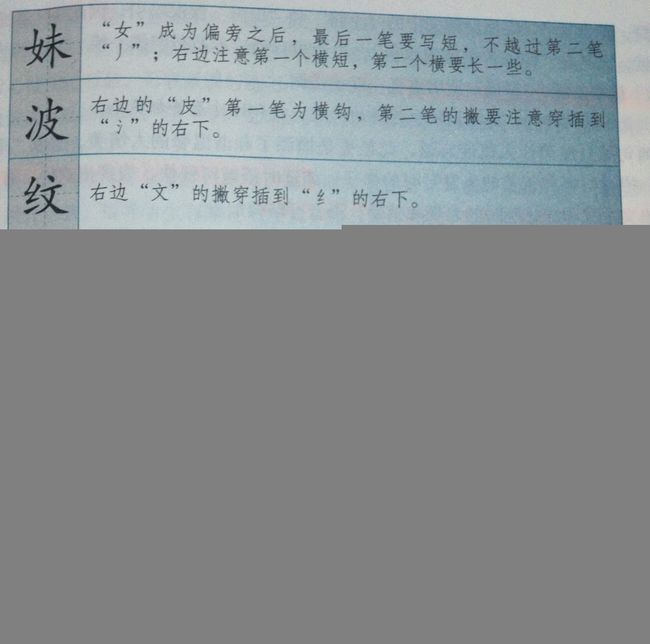 妹
“女”成为偏旁之后，最后一笔要写短，不越过第二笔
“丿”；右边注意第一个横短，第二个横要长一些。
波
右边的“皮”第一笔为横钩，第二笔的撇要注意穿插到
“氵”的右下。
纹
右边“文”的撇穿插到“纟”的右下。